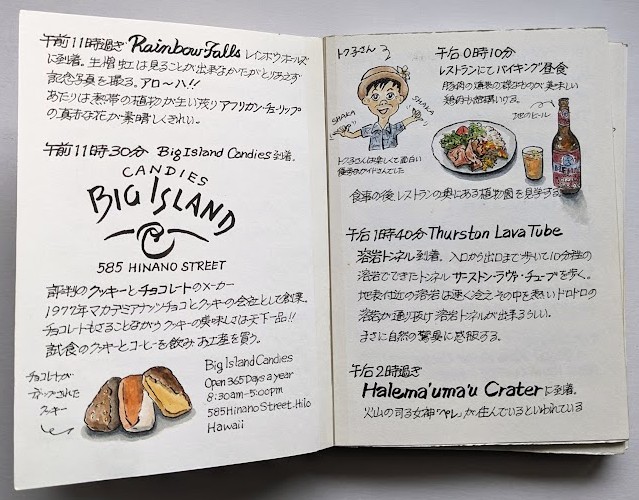 午前11時過ぎ Rainbow Falls レインボウホールズ
に到着。生憎虹は見ることが出来なかたがとりあえず
記念写真を撮る。アロ〜ハ!!
あたりは熱帯の植物が生い茂り アフリカン・チューリップ
の真赤な花が素晴しくきれい。
午前11時30分 Big Island Candies 到着.
CANDIES
BIG ISLAND
585 HINANO STREET
評判のクッキーとチョコレートのメーカー
1977年マカデミアナッツチョコとクッキーの会社として創業。
チョコレートもさることながらクッキーの美味しさは天下一品!!
試食のクッキーとコーヒーを飲み お土産を買う。
チョコレートが
クッキー
Big Island Candies
Open 365 Days a year
8:30am-5:00pm
585 Hinano Street. Hilo
Hawaii
トク子さん
SHAKA
SHAKA
トク子さんは楽しくて面白い
優秀なガイドさんでした
午后0時10分
レストランにてバイキング昼食
豚肉の燻製の様なものが美味しい
地のビール
食事の後、レストランの奥にある植物園を見学する
午后1時40分 Thurston Lava Tube
溶岩トンネル到着. 入口から出口まで歩いて10分程の
溶岩でできたトンネル サーストン・ラヴァ・チューブを歩く。
地表付近の溶岩は速く冷え その中を熱いドロドロの
溶岩が通り抜け 溶岩トンネルが出来るらしい.
まさに自然の驚異に感服する.
午后2時過ぎ
Halema'uma'u Crater に到着.
火山の司る女神 "ペレ" が住んでいるといわれている